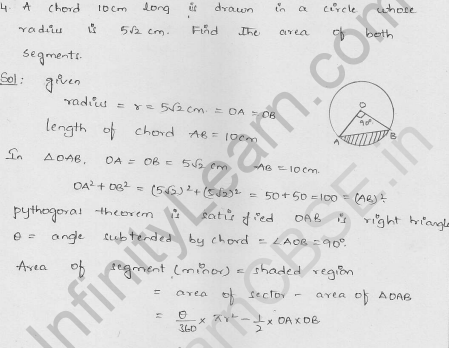 4. A chord 10cm long is drawn in a circle whose
radius is 5√2 cm. Find the area of both
segments.
Sol: given
radius = r = 5√2 cm = OA = OB
length of chord AB = 10cm
O
90°
A
B
In △OAB, OA = OB = 5√2 cm AB = 10cm.
OA² + OB² = (5√2)² + (5√2)² = 50 + 50 = 100 = (AB)²
pythogoras theorem is satisfied OAB is right triangle
θ = angle subtended by chord = ∠AOB = 90°.
Area of segment (minor) = shaded region
= area of sector - area of △OAB
= θ/360 × πr² - 1/2 × OA × OB
InfinityLearn.com